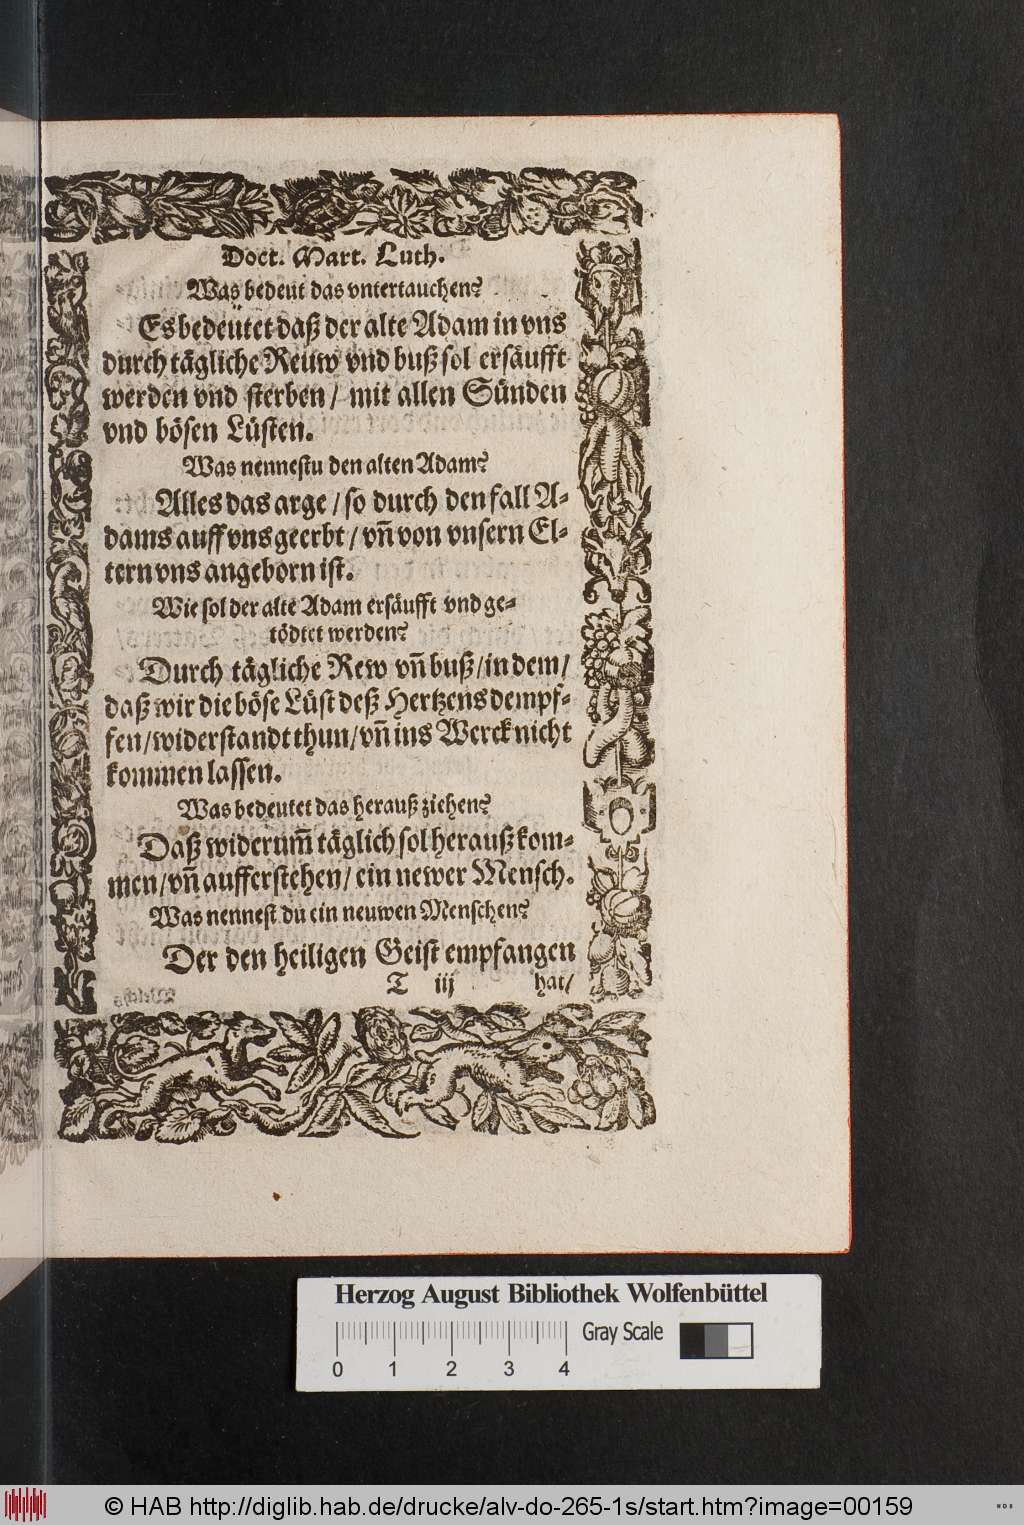 Doct. Mart. Luth.
Was bedeut das vntertauchen?
Es bedeütet daß der alte Adam in vns
durch tägliche Reuw vnd buß sol ersäufft
werden vnd sterben / mit allen Sünden
vnd bösen Lüsten.
Was nennestu den alten Adam?
Alles das arge / so durch den fall A-
dams auff vns geerbt / vñ von vnsern El-
tern vns angeborn ist.
Wie sol der alte Adam ersäufft vnd ge-
tödtet werden?
Durch tägliche Rew vñ buß / in dem /
daß wir die böse Lüst deß Hertzens dempf-
fen / widerstandt thun / vñ ins Werck nicht
kommen lassen.
Was bedeutet das herauß ziehen?
Daß widerum̃ täglich sol herauß kom-
men / vñ aufferstehen / ein newer Mensch.
Was nennest du ein neuwen Menschen?
Der den heiligen Geist empfangen
T iij hat /
Herzog August Bibliothek Wolfenbüttel
Gray Scale
0 1 2 3 4
© HAB http://diglib.hab.de/drucke/alv-do-265-1s/start.htm?image=00159